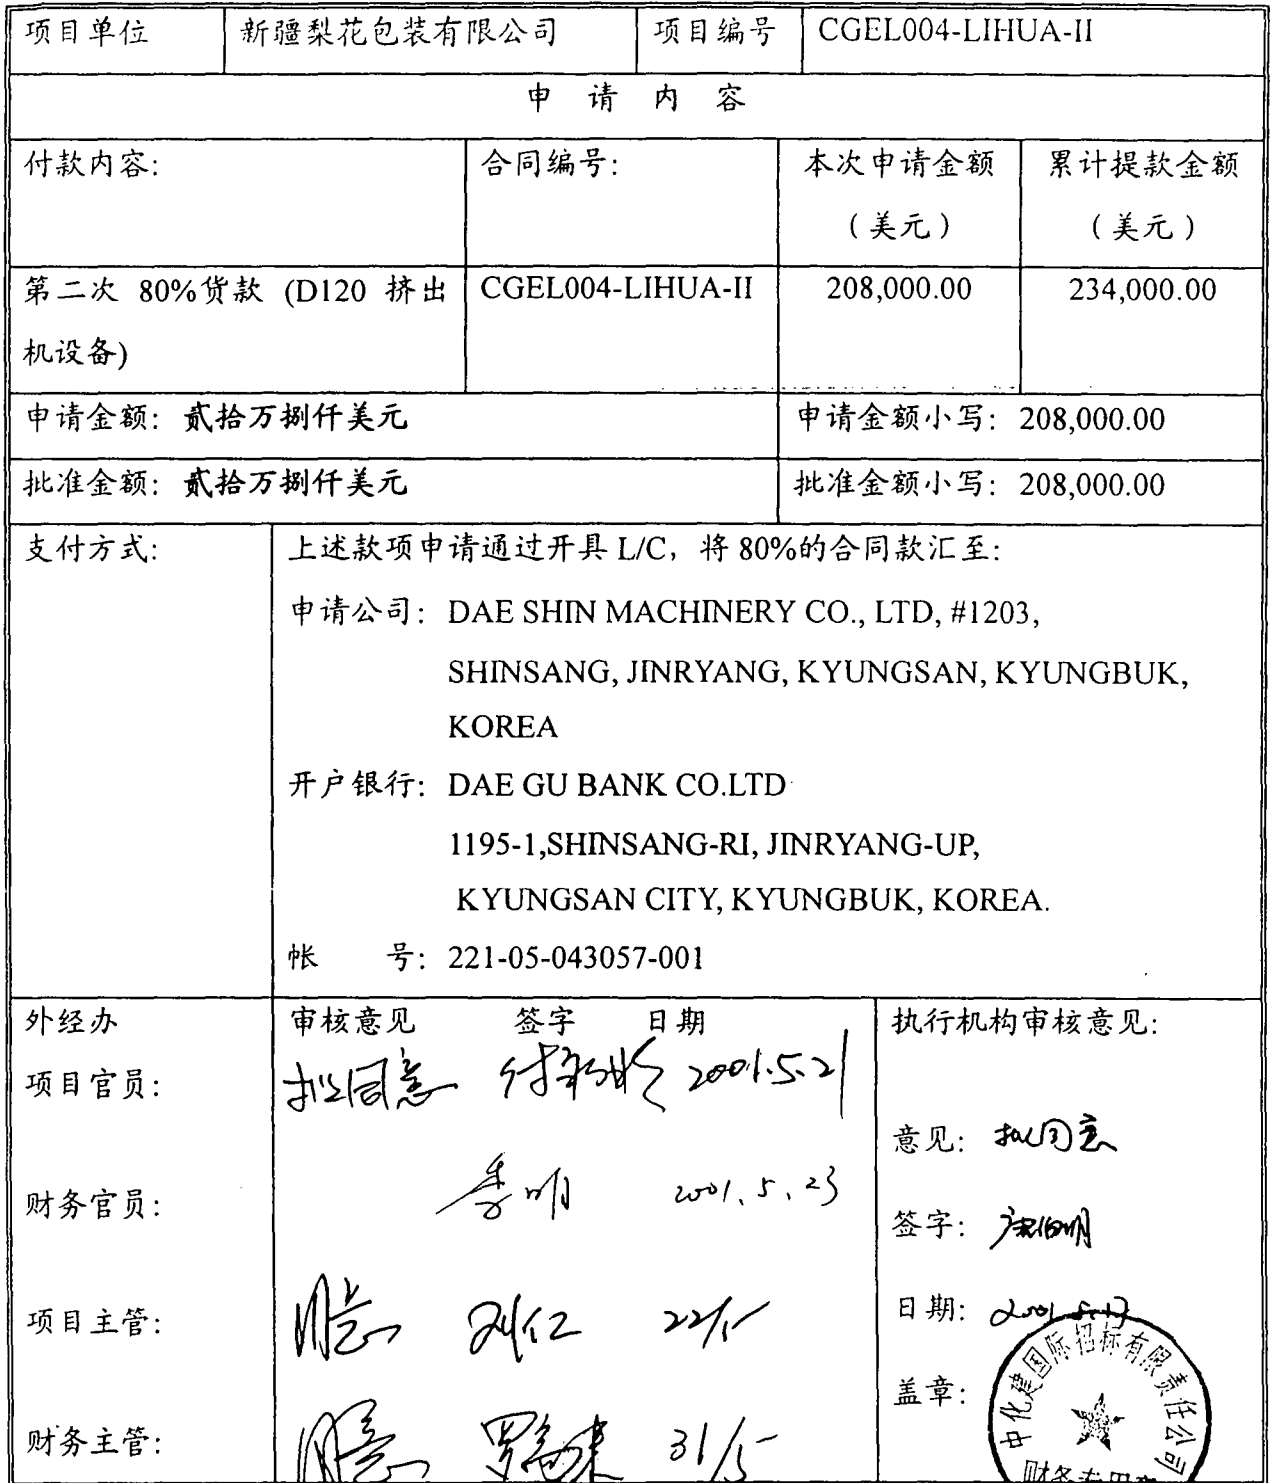 项目单位 新疆梨花包装有限公司 项目编号 CGEL004-LIHUA-II
申 请 内 容
付款内容: 合同编号: 本次申请金额 累计提款金额
(美元) (美元)
第二次 80%货款 (D120 挤出 CGEL004-LIHUA-II 208,000.00 234,000.00
机设备)
申请金额: 贰拾万捌仟美元 申请金额小写: 208,000.00
批准金额: 贰拾万捌仟美元 批准金额小写: 208,000.00
支付方式: 上述款项申请通过开具 L/C, 将 80%的合同款汇至:
申请公司: DAE SHIN MACHINERY CO., LTD, #1203,
SHINSANG, JINRYANG, KYUNGSAN, KYUNGBUK,
KOREA
开户银行: DAE GU BANK CO.LTD
1195-1,SHINSANG-RI, JINRYANG-UP,
KYUNGSAN CITY, KYUNGBUK, KOREA.
帐 号: 221-05-043057-001
外经办 审核意见 签字 日期 执行机构审核意见:
项目官员: 拟同意 2001.5.21
意见: 拟同意
财务官员: 李明 2001.5.23
签字:
项目主管: 同意 刘仁 22/5
日期: 2001.5.17
盖章:
中化建国际招标有限责任公司
财务专用章
财务主管: 同意 31/5